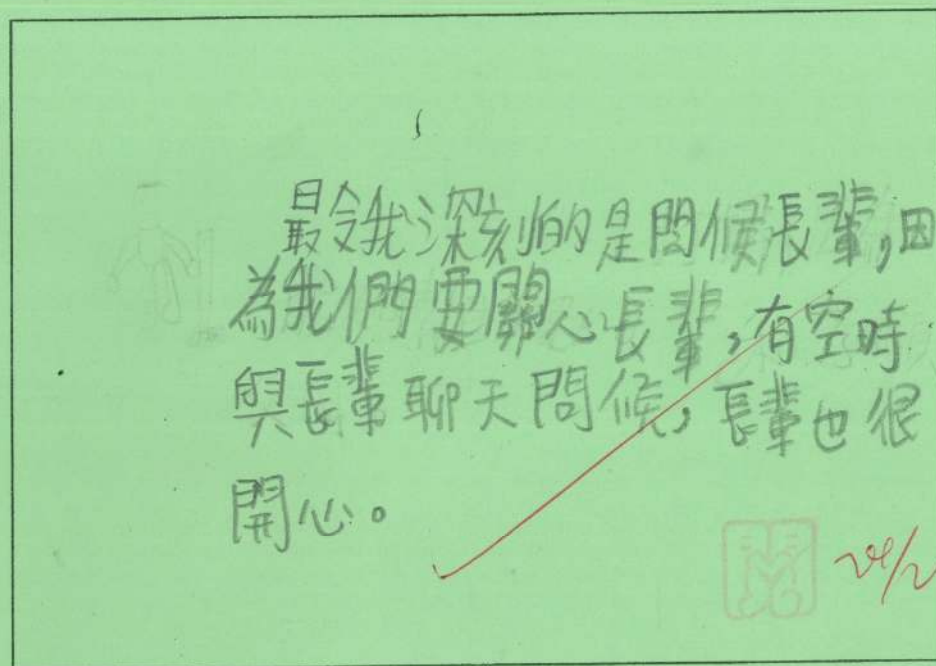 最令我深刻的是問候長輩,因
為我們要關心長輩,有空時
與長輩聊天問候,長輩也很
開心。